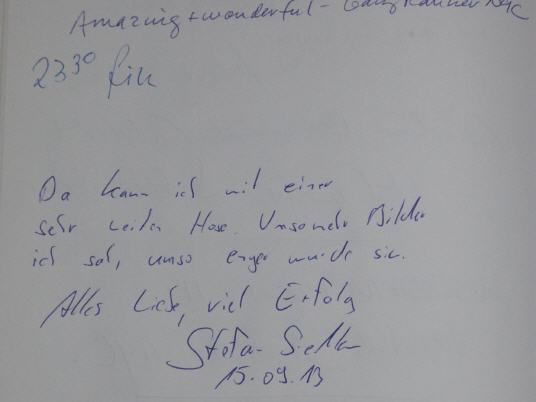 Amazing + wonderful -
23 30
Da kam ich mit einer
sehr weiten Hose. Umso mehr Bilder
ich sah, umso enger wurde sie.
Alles Liebe, viel Erfolg
Stefan
15.09.13